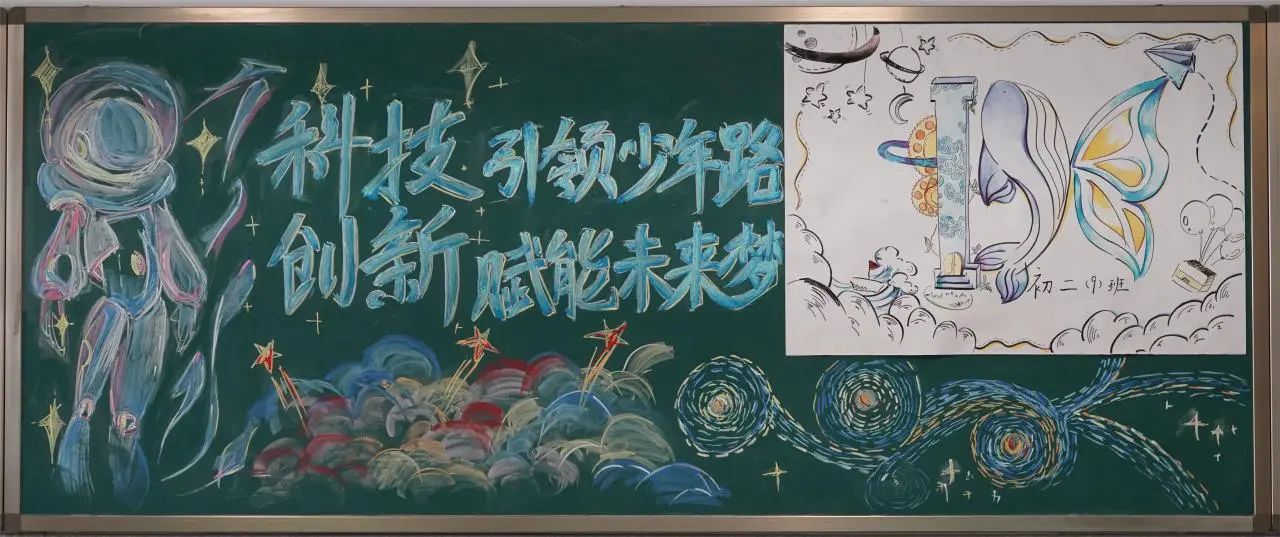 科技 引领少年路
创新 赋能未来梦
初二(9)班